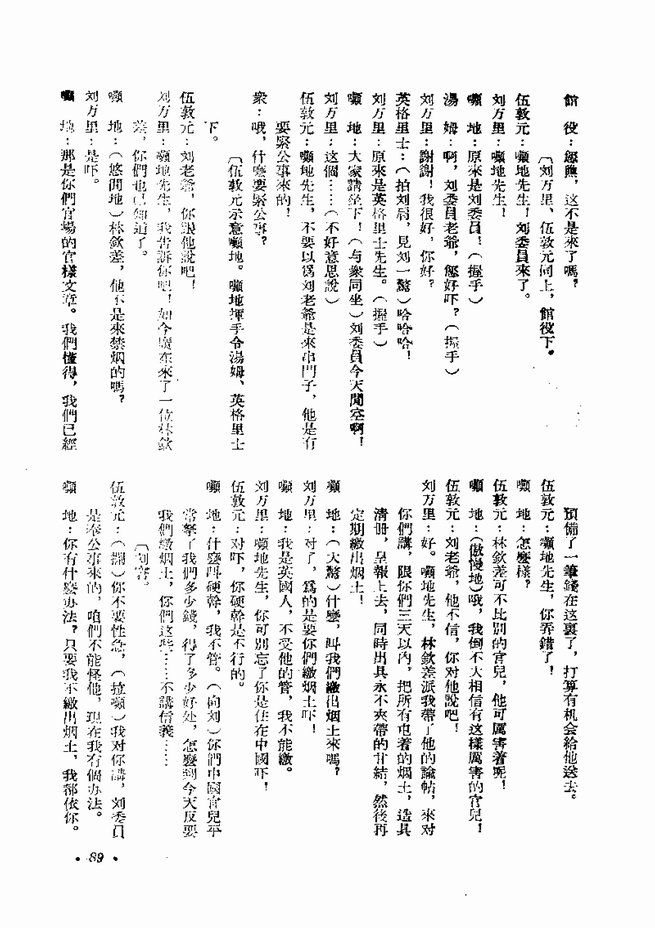 館　役：您瞧，这不是来了嗎？
〔刘万里、伍敦元同上，館役下。
伍敦元：囒地先生！刘委員来了。
刘万里：囒地先生！
囒　地：原来是刘委員！（握手）
湯　姆：啊，刘委員老爺，您好吓？（握手）
刘万里：謝謝！我很好，你好？
英格里士：（拍刘肩，見刘一驚）哈哈哈！
刘万里：原来是英格里士先生。（握手）
囒　地：大家請坐下！（与衆同坐）刘委員今天閒空啊！
刘万里：这個……（不好意思說）
伍敦元：囒地先生，不要以爲刘老爺是来串門子，他是有
要緊公事来的！
衆：哦，什麽要緊公事？
〔伍敦元示意囒地。囒地揮手令湯姆、英格里士
下。
伍敦元：刘老爺，你跟他說吧！
刘万里：囒地先生，我告訴你吧！如今廣东来了一位林欽
差，你們也已知道了。
囒　地：（悠閒地）林欽差，他不是来禁烟的嗎？
刘万里：是吓。
囒　地：那是你們官場的官樣文章。我們懂得，我們已經
預備了一筆錢在这裏了，打算有机会給他送去。
伍敦元：囒地先生，你弄錯了！
囒　地：怎麽樣？
伍敦元：林欽差可不比別的官兒，他可厲害着呢！
囒　地：（傲慢地）哦，我倒不大相信有这樣厲害的官兒！
伍敦元：刘老爺，他不信，你对他說吧！
刘万里：好。囒地先生，林欽差派我帶了他的諭帖，来对
你們講，限你們三天以內，把所有屯着的烟土，造具
清册，呈報上去，同時出具永不夹帶的甘結，然後再
定期繳出烟土！
囒　地：（大驚）什麽，叫我們繳出烟土来嗎？
刘万里：对了，爲的是要你們繳烟土吓！
囒　地：我是英國人，不受他的管，我不能繳。
刘万里：囒地先生，你可別忘了你是住在中國吓！
伍敦元：对吓，你硬幹是不行的。
囒　地：什麽叫硬幹，我不管。（向刘）你們中國官兒平
常拏了我們多少錢，得了多少好处，怎麽到今天反要
我們繳烟土，你們这些……不講信義……
〔刘窘。
伍敦元：（調）你不要性急，（拉囒）我对你講，刘委員
是奉公事来的，咱們不能怪他，現在我有個办法。
囒　地：你有什麽办法？只要我不繳出烟土，我都依你。
• 89 •